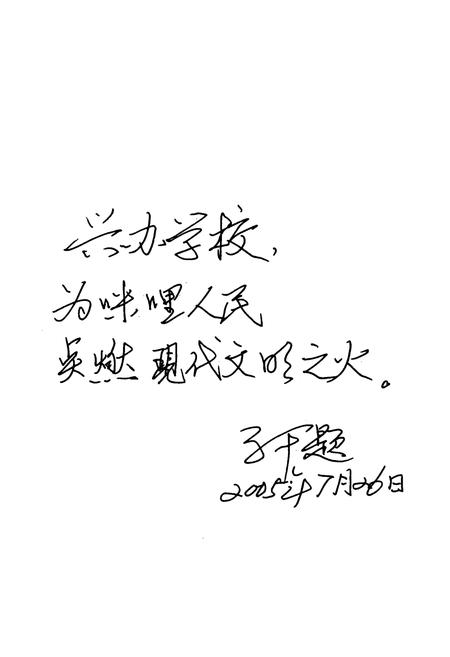 兴办学校,
为咪哩人民
点燃現代文明之火。
题
2005年7月26日